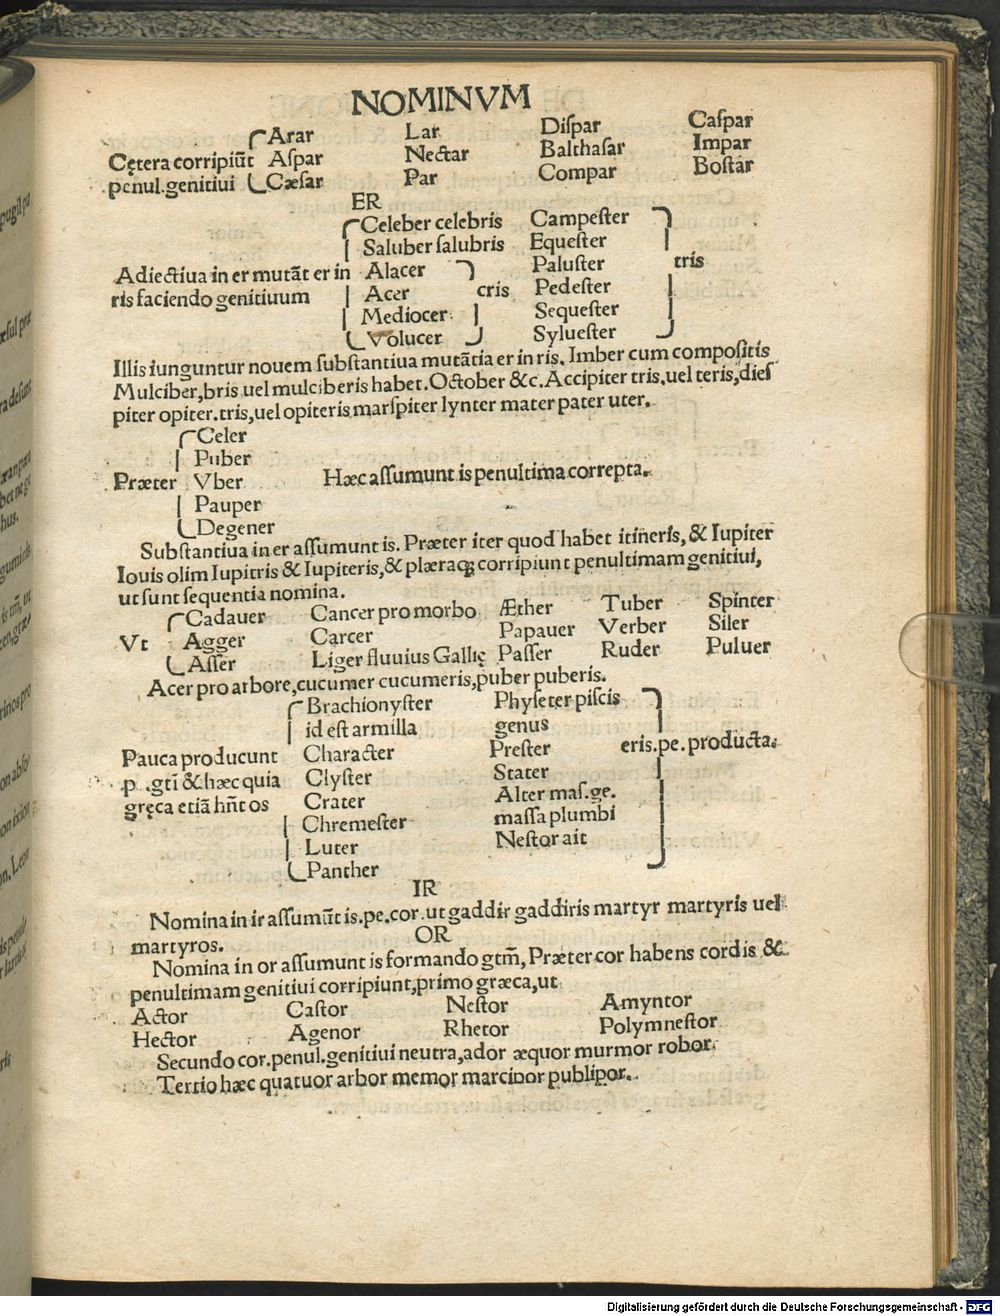 NOMINVM
Arar Lar Diſpar Caſpar
Cętera corripiūt Aſpar Nectar Balthaſar Impar
penul.genitiui Cæſar Par Compar Boſtar
ER
Celeber celebris Campeſter
Saluber ſalubris Equeſter
Adiectiua in er mutāt er in Alacer Paluſter tris
ris faciendo genitiuum Acer cris Pedeſter
Mediocer Sequeſter
Volucer Sylueſter
Illis iunguntur nouem ſubſtantiua mutātia er in ris. Imber cum compoſitis
Mulciber,bris uel mulciberis habet. October &c. Accipiter tris.uel teris,dieſ
piter opiter.tris,uel opiteris marſpiter lynter mater pater uter.
Celer
Puber
Præter Vber Hæc aſſumunt is penultima correpta.
Pauper
Degener
Subſtantiua in er aſſumunt is. Præter iter quod habet itineris, & Iupiter
Iouis olim Iupitris & Iupiteris,& plæraqꝫ corripiunt penultimam genitiui,
ut ſunt ſequentia nomina.
Cadauer Cancer pro morbo Æther Tuber Spinter
Vt Agger Carcer Papauer Verber Siler
Aſſer Liger fluuius Gallię Paſſer Ruder Puluer
Acer pro arbore,cucumer cucumeris,puber puberis.
Brachionyſter Phyſeter piſcis
id eſt armilla genus
Pauca producunt Character Preſter eris.pe.producta.
p .gtī & hæc quia Clyſter Stater
gręca etiā hñt os Crater Alter maſ.ge.
Chremeſter maſſa plumbi
Luter Neſtor ait
Panther
IR
Nomina in ir aſſumūt is.pe.cor.ut gaddir gaddiris martyr martyris uel
martyros.
OR
Nomina in or aſſumunt is formando gtm̄, Præter cor habens cordis &
penultimam genitiui corripiunt,primo græca,ut
Actor Caſtor Neſtor Amyntor
Hector Agenor Rhetor Polymneſtor
Secundo cor.penul.genitiui neutra,ador æquor murmor robor.
Tertio hæc quatuor arbor memor marcipor publipor.
Digitalisierung gefördert durch die Deutsche Forschungsgemeinschaft - DFG